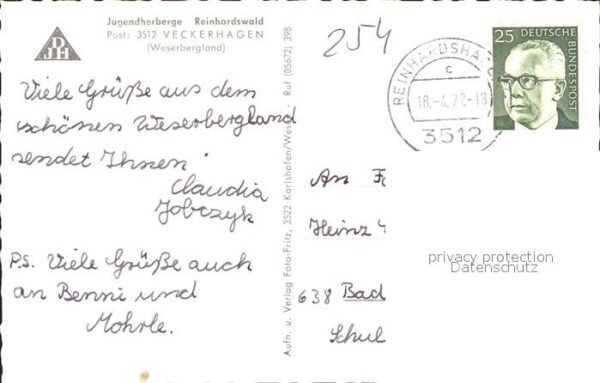 Jugendherberge Reinhardswald
Post: 3512 VECKERHAGEN
(Weserbergland)
DJH
Viele Grüße aus dem
schönen Weserbergland
sendet Ihnen
Claudia
Jobczyk
P.S. Viele Grüße auch
an Benni und
Mohrle.
Aufn. u. Verlag Foto-Fritz, 3522 Karlshafen/Weser - Ruf (05672) 398
254
REINHARDSHA
c
18.-4.72-18
3512
25 DEUTSCHE
BUNDESPOST
An
Heinz
638 Bad
Schul
privacy protection
Datenschutz